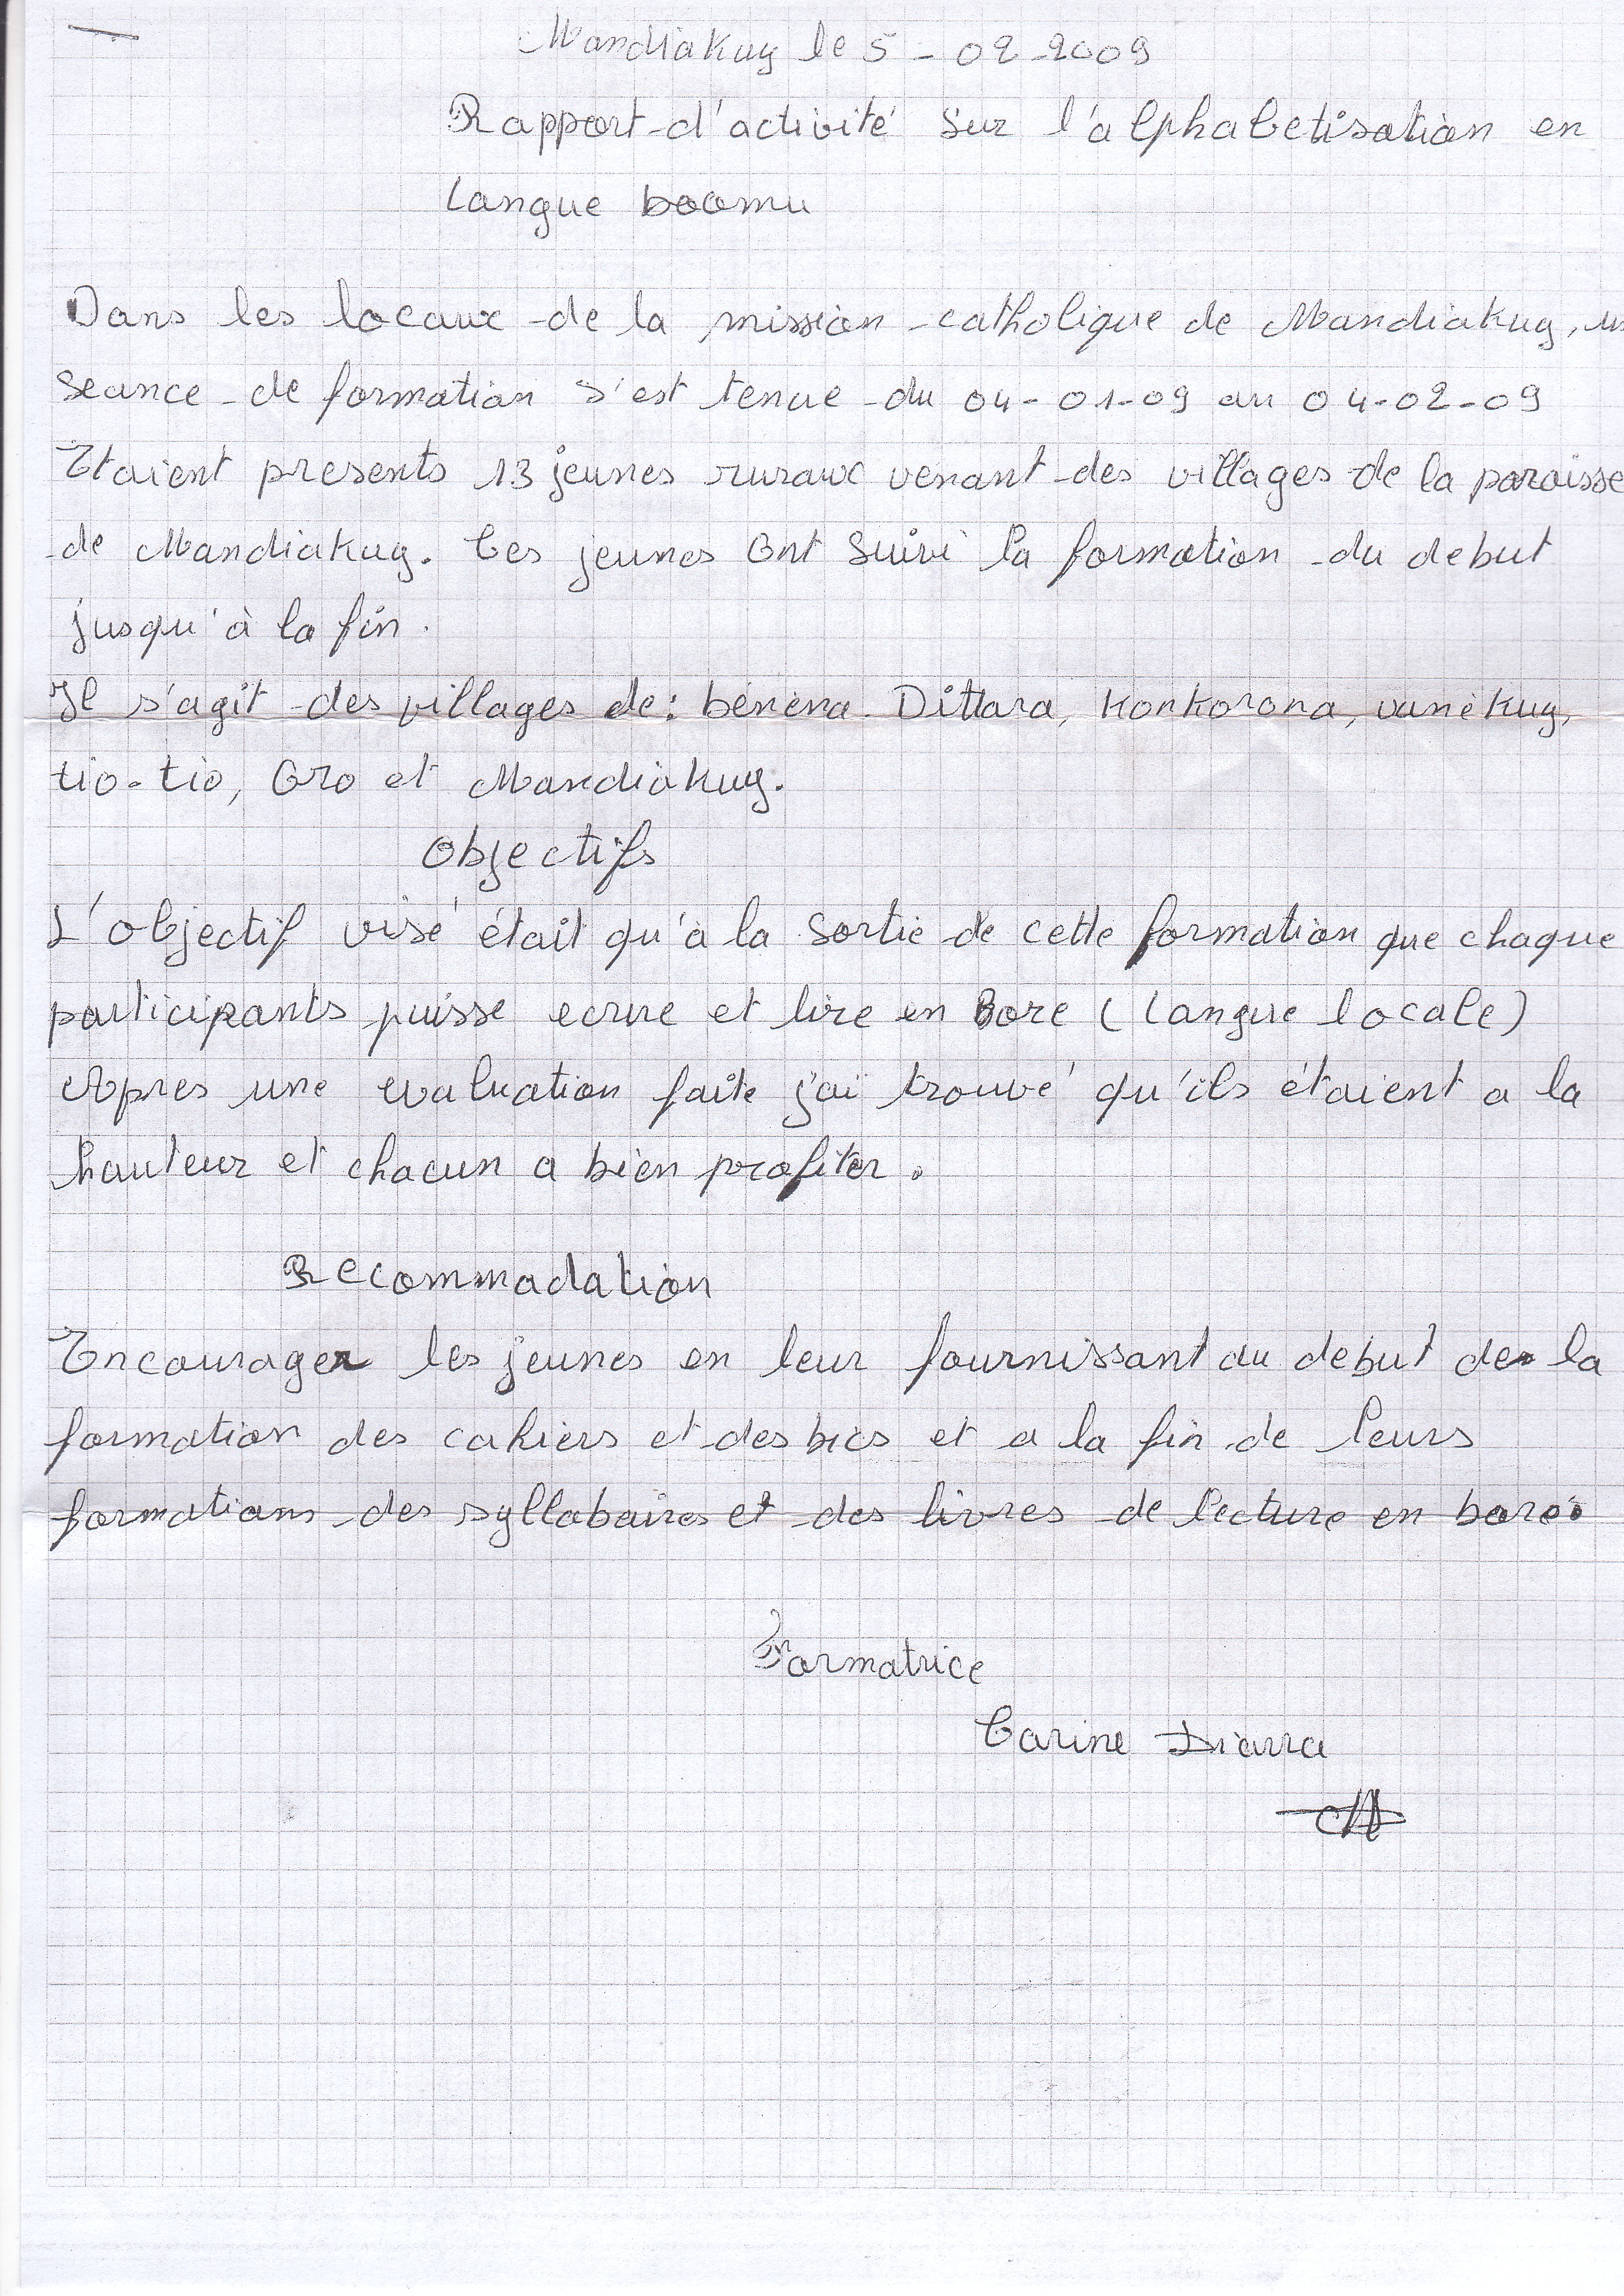 Mandiakuy le 5-02-2009
Rapport d'activité sur l'alphabetisation en
langue boomu
Dans les locaux de la mission catholique de Mandiakuy,
seance de formation s'est tenue du 04-01-09 au 04-02-09
Etaient presents 13 jeunes ruraux venant des villages de la paroisse
de Mandiakuy. Ces jeunes ont suivi la formation du debut
jusqu'à la fin.
Il s'agit des villages de: bénéna. Dittara, Konkorona, vanékuy,
tio-tio, Oro et Mandiakuy.
Objectifs
L'objectif visé était qu'à la sortie de cette formation que chaque
participants puisse ecrire et lire en Bore (langue locale)
Apres une evaluation faite j'ai trouvé qu'ils étaient a la
hauteur et chacun a bien profiter.
Recommadation
Encourager les jeunes en leur fournissant au debut de la
formation des cahiers et des bics et a la fin de leurs
formations des syllabaires et des livres de lecture en bore.
Formatrice
Carine Diarra